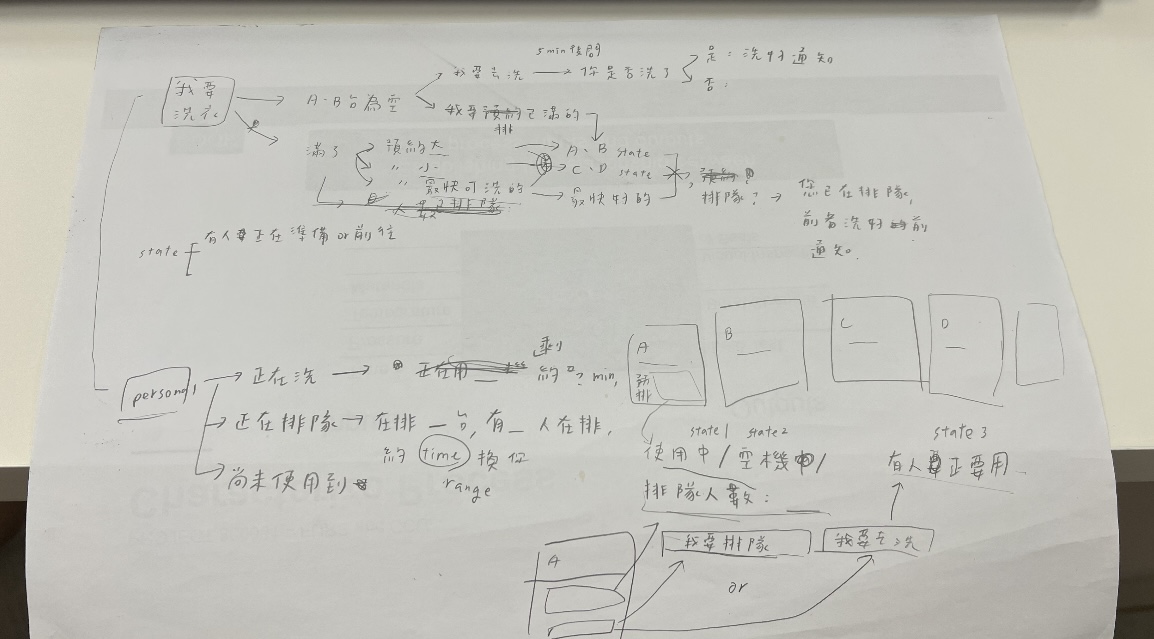 5min後問
我要去洗 → 你是否洗了
是：洗好通知
否：
我要
洗衣
A、B台為空
我要預約已滿的
排
滿了
預約大
〃 小
〃 最快可洗的
A、B state
C、D state
最快好的
預約
排隊？→ 您已在排隊,
前者洗好前
通知。
人數已排隊
state
有人正在準備 or 前往
personal
正在洗 →
正在用
剩
約？min,
正在排隊 → 在排 _ 台, 有 _ 人在排,
約 time 換你
range
尚未使用到
A
預
排
B
C
D
state1 state2
使用中/空機中/
排隊人數：
state3
有人正要用
A
我要排隊
我要去洗
or